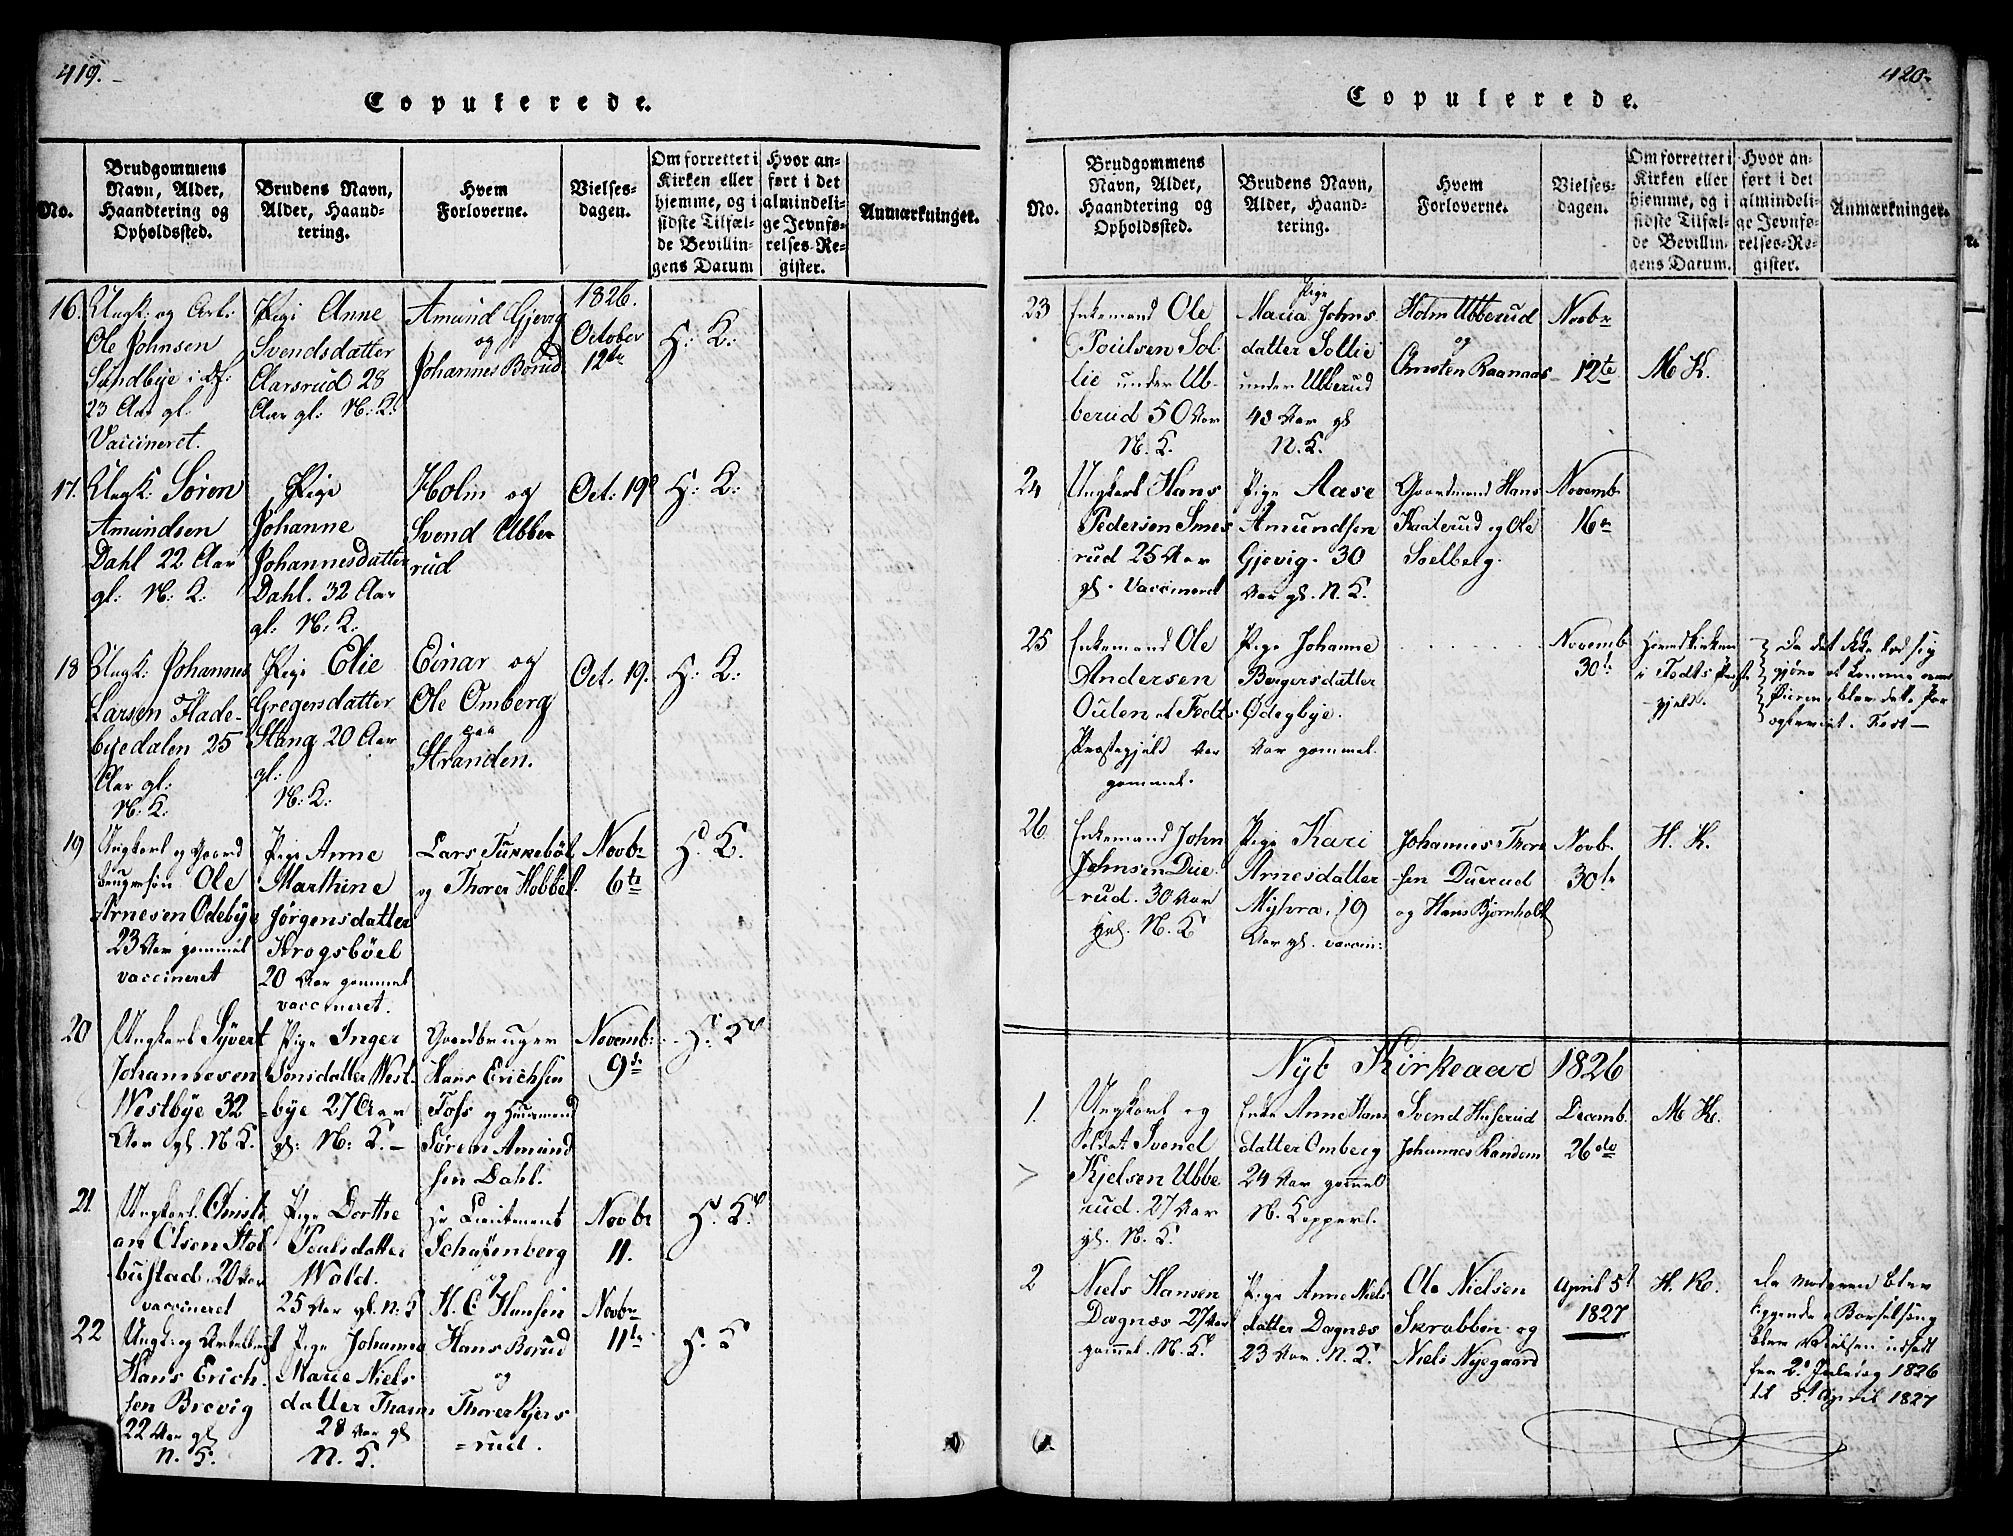 419.
Copulerede.
No.
Brudgommens
Navn, Alder,
Haandtering og
Opholdssted.
Brudens Navn,
Alder, Haand-
tering.
Hvem
Forloverne.
Vielses-
dagen.
Om forrettet i
Kirken eller
hjemme, og i
sidste Tilfæl-
de Bevillin-
gens Datum
Hvor an-
ført i det
almindeli-
ge Jevnfø-
relses-Re-
gister.
Anmærkninger.
16.
Ungk: og
Ole Johnsen
Sundbye
23 Aar gl.
Vaccineret.
Pige Anne
Svendsdatter
Aarsrud 28
Aar gl: N: K:
Amund Gjevig
og
Johannes Borud
1826.
October
12te
H: K:
17.
Ungk: Sören
Amundsen
Dahl 22 Aar
gl: N: K:
Pige
Johanne
Johannesdatter
Dahl. 32 Aar
gl: N: K:
Holm og
Svend Ubbe
rud
Oct: 19
H: K:
18
Ungk: Johannes
Larsen Flade-
byedalen 25
Aar gl:
N: K:
Pige Elie
Gregersdatter
Stang 20 Aar
gl:
N: K:
Einar og
Ole Omberg
paa
Stranden.
Oct: 19.
H: K:
19
Ungkarl og Gaard
brugersøn Ole
Arnesen Ödebye
23 Aar gammel
vaccineret
Pige Anne
Marthine
Jörgensdatter
Krogsböel
20 Aar gammel
vaccineret.
Lars Tukkeböl
og Thorer Hobbel.
Novbr
6te
H. K.
20
Ungkarl Syvert
Johannesen
Westbye 32
Aar gl. N. K.
Pige Inger
Jonsdatter West-
bye 27 Aar
gl: N: K. -
Gaardbruger
Hans Erichsen
Foss og Huusmand
Sören Amund
sen Dahl.
Novemb:
9de
H. K.
21.
Ungkarl. Christi
an Olsen Stal
bustad. 20 Aar
vaccineret
Pige Dorthe
Poulsdatter
Wold.
25 Aar gl. N: K
Hr Lieutenant
Scharfenberg
og
H. C Hansen
Novbr
11.
H. K.
22
Ungk: og
Hans Erich-
sen Brevig
22 Aar gl
N. K.
Pige Johanna
Marie Niels
datter
28 Aar gl
N. K.
Hans Borud
og
Thorer Kjers
=rud.
Novbr
11te
H. K
420.
Copulerede.
No.
Brudgommens
Navn, Alder,
Haandtering og
Opholdssted.
Brudens Navn,
Alder, Haand-
tering.
Hvem
Forloverne.
Vielses-
dagen.
Om forrettet i
Kirken eller
hjemme, og i
sidste Tilfæl-
de Bevillin-
gens Datum.
Hvor an-
ført i det
almindeli-
ge Jevnfø-
relses-Re-
gister.
Anmærkninger.
23
Enkemand Ole
Poulsen Sol
lie under Ub-
berud 50 Aar
N. K.
Pige
Maria Johns
datter Sollie
under Ubberud
48 Aar gl
N. K.
Holm Ubberud
og
Christen Raanaas
Novbr
12te
M K.
24
Ungkarl Hans
Pedersen Smes
rud 25 Aar
gl. Vaccineret
Pige Aase
Amundsen
Gjevig. 30
Aar gl. N. K.
Gaardmand Hans
Kaaterud og Ole
Soelberg.
Novemb
16de
25
Enkemand Ole
Andersen
Oulen af Fedts
Præstegjeld Aar
gammel.
Pige Johanne
Børgersdatter
Ødegbye.
Aar gammel.
Novemb
30te
Hovedkirken
i Fedts Præste
gjeld.
Da det ikke lod sig
gjøre at komme over
26.
Enkemand John
Johnsen Due
rud. 30 Aar
gl. N. K
Pige Kari
Arnesdatter
Myhra. 19
Aar gl. vaccin:
Johannes Thor
sen Duerud
og Hans Bjørnholt
Novb.
30te
H. K.
Nyt Kirkeaar 1826
1.
Ungkarl og
Soldat Svend
Kjelsen Ubbe
rud. 27 Aar
gl. N. K.
Enke Anne Hans
datter Omberg
24 Aar gammel
N. Kopperl.
Svend Huserud
Johannes Randem
Decemb.
26de
M K.
2
Niels Hansen
Dagnæs 27 Aar
gammel. N. K.
Pige Anne Niels
datter Dagnæs
23 Aar. N. K.
Ole Nielsen
Skrabben og
Niels Nysgaard
April 5t
1827
H. K.
Da Moderen blev
liggende i Barselseng
blev Vielsen udsatt
fra 2. Juledag 1826
til 5 April 1827